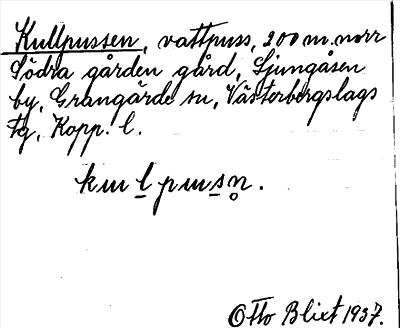 Kullpussen, vattpuss, 200 m. norr
Södra gården gård, Ljungåsen
by, Grangärde sn, Västerbergslags
fg, Kopp. l.
kul̲pus̲n̥.
Otto Blixt 1937.